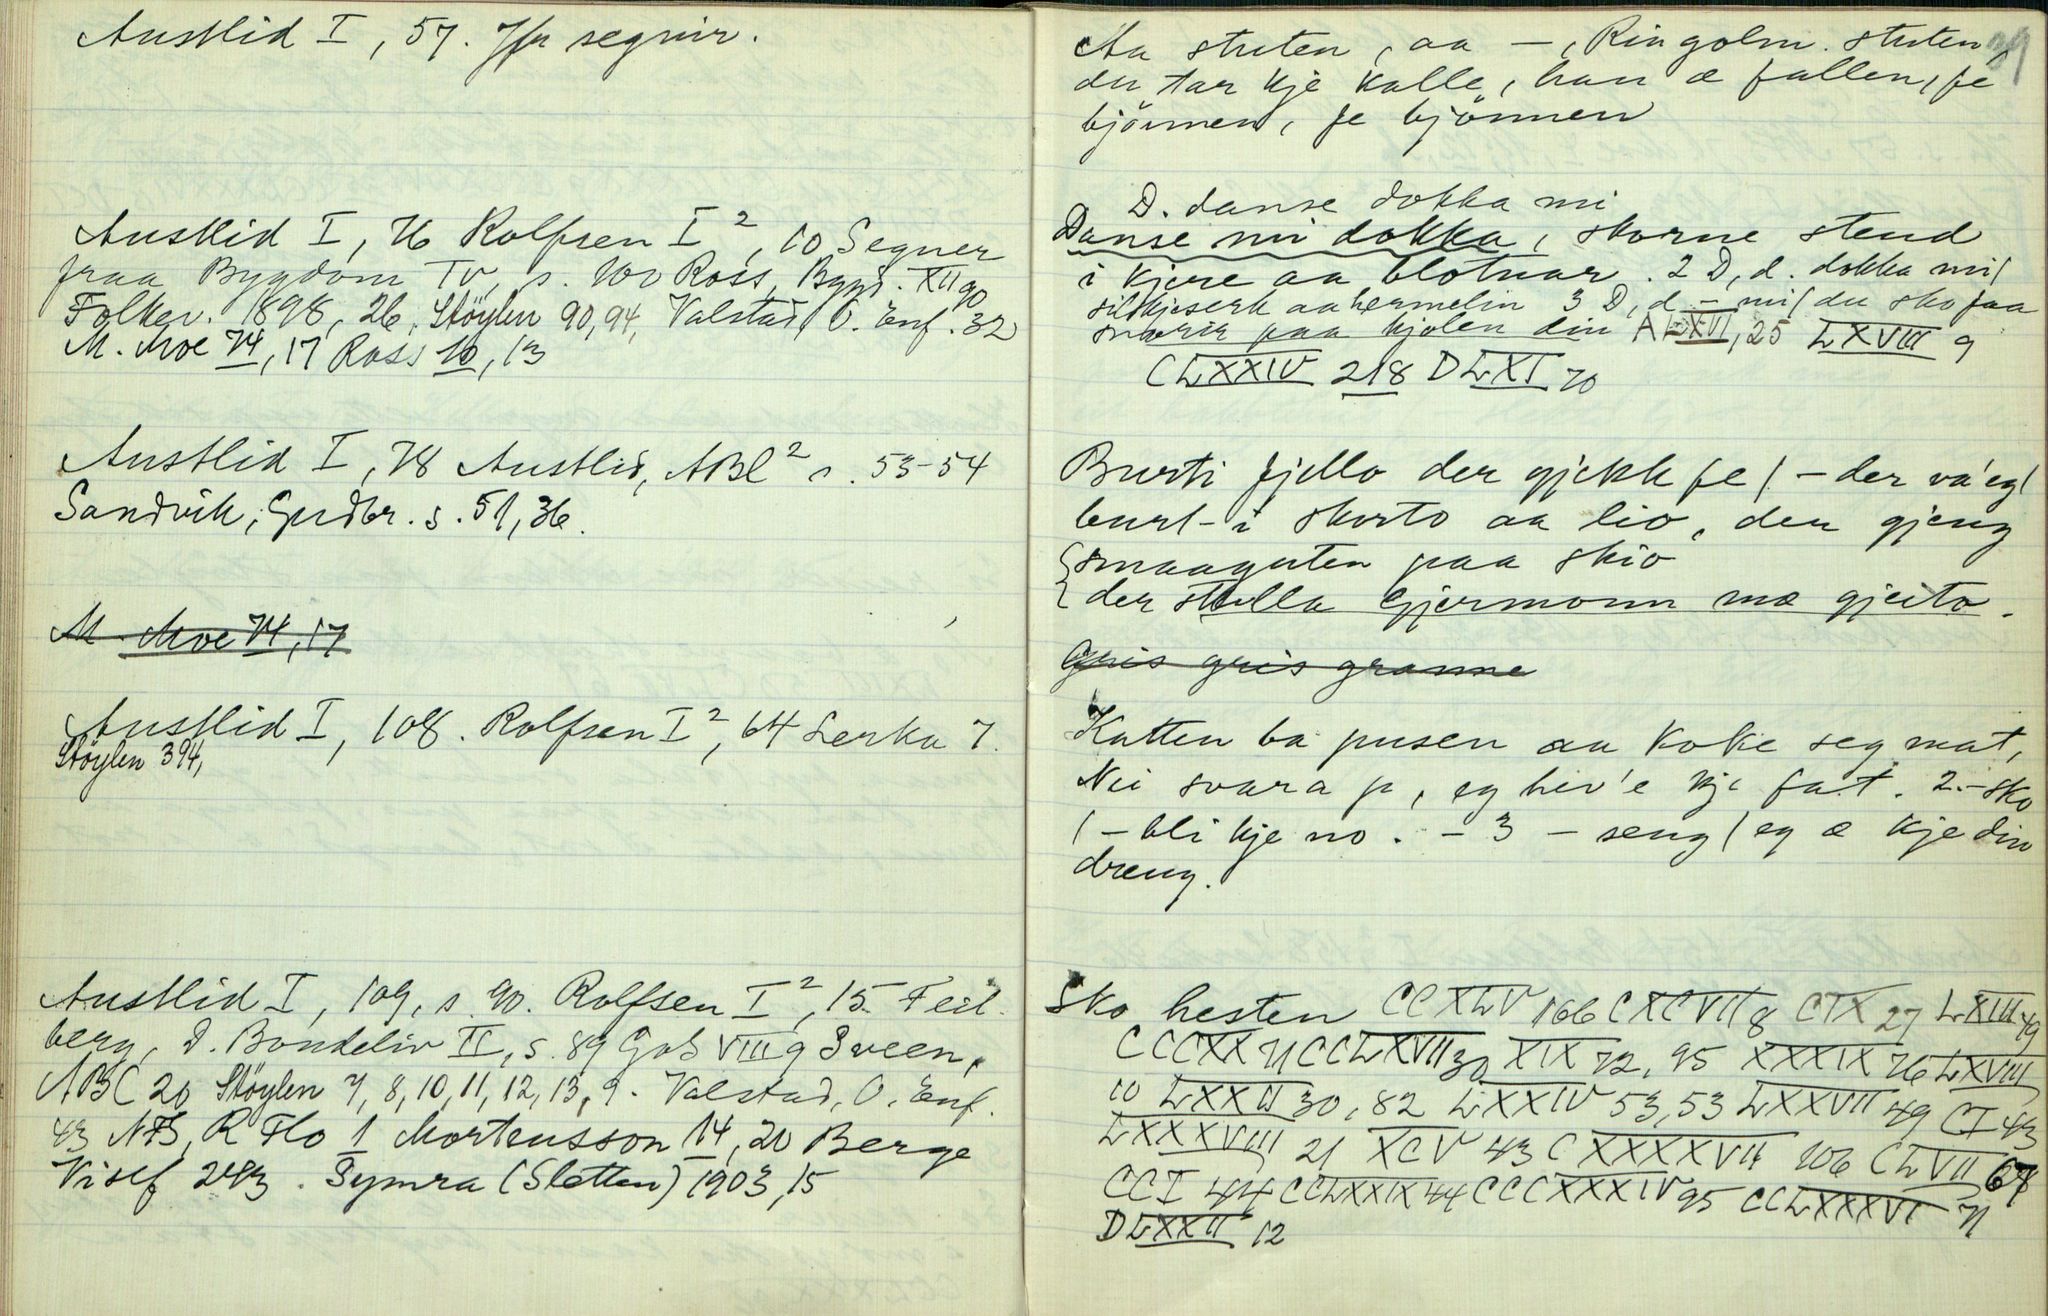 Austlid I, 57. Jfr segnir.
Austlid I, 76 Rolfsen I², 10 Segner
fraa Bygdom IV, s. 100 Ross, Bygd. XII 90
Folkev. 1898, 26, Støylen 90, 94, Valstad, O. Enf. 32
M. Moe 74, 17 Ross 10, 13
Austlid I, 78 Austlid, ABl² s. 53-54
Sandvik, Gudbr. s. 51, 36.
M. Moe 74, 17
Austlid I, 108. Rolfsen I², 64 Lerka 7.
Støylen 394,
Austlid I, 109, s. 90. Rolfsen I², 15. Feil-
berg, D. Bondeliv II, s. 89 GaS VIII 9 Sveen,
ABC 20 Støylen 7, 8, 10, 11, 12, 13, 9. Valstad, O. Enf.
43 NFS, R Flo 1 Mortensson 14, 20 Berge
Visef 243. Symra (Sletten) 1903, 15
39
Aa stuten, aa —, Ringolm. stuten
du tar kje kalle, han æ fallen, fe
bjönnen, fe bjönnen
D. danse dokka mi
Danse mi dokka, skorne stend
i kjere aa blotnar. 2 D, d. dokka mi/
silkjeserk aa hermelin 3 D, d — mi/ du sko faa
paa kjolen din A LXVI, 25 LXVIII 9
CLXXIV 218 DLXI 70
Burti fjello der gjekk fe / — der va' eg/
burt- i skorto aa lio, den gjeng
smaaguten paa skio
der stulla Gjermonn mæ gjeito.
Gris gris granne
Katten ba pusen aa koke seg mat,
Nei svara p, eg hev'e kje fat. 2.- sko
/ — bli kje no. — 3 — seng / eg æ kje din
dreng.
Sko hesten CCXLV 166 CXCVII 8 CIX 27 LXIII 49
CCCXX 71 CCLXVII 30 XIX 72, 95 XXXIX 76 LXVIII
10 LXXII 30, 82 LXXIV 53, 53 LXXVII 49 CI 43
LXXXVIII 21 XCV 43 CXXXXVII 106 CLVII 67
CCI 44 CCLXXIX 44 CCCXXXIV 95 CCLXXXVI 71
DLXXII 12